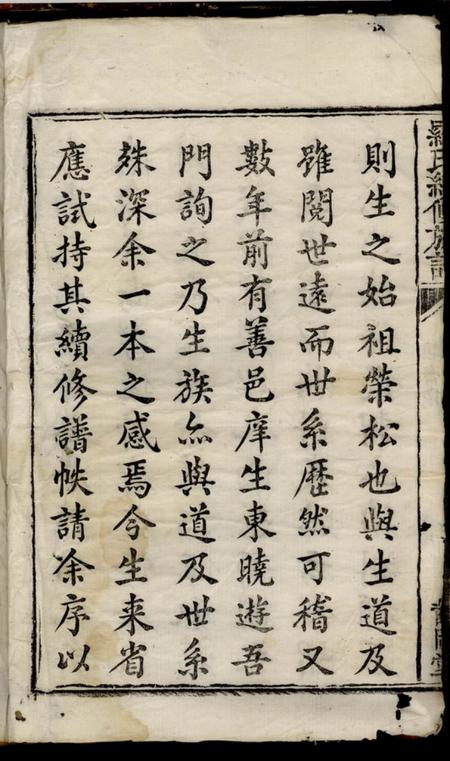 羅氏續修族譜
則生之始祖榮松也與生道及
雖閱世遠而世系歷然可稽又
數年前有善邑庠生東曉遊吾
門詢之乃生族亦與道及世系
殊深余一本之感焉今生來省
應試持其續修譜帙請余序以